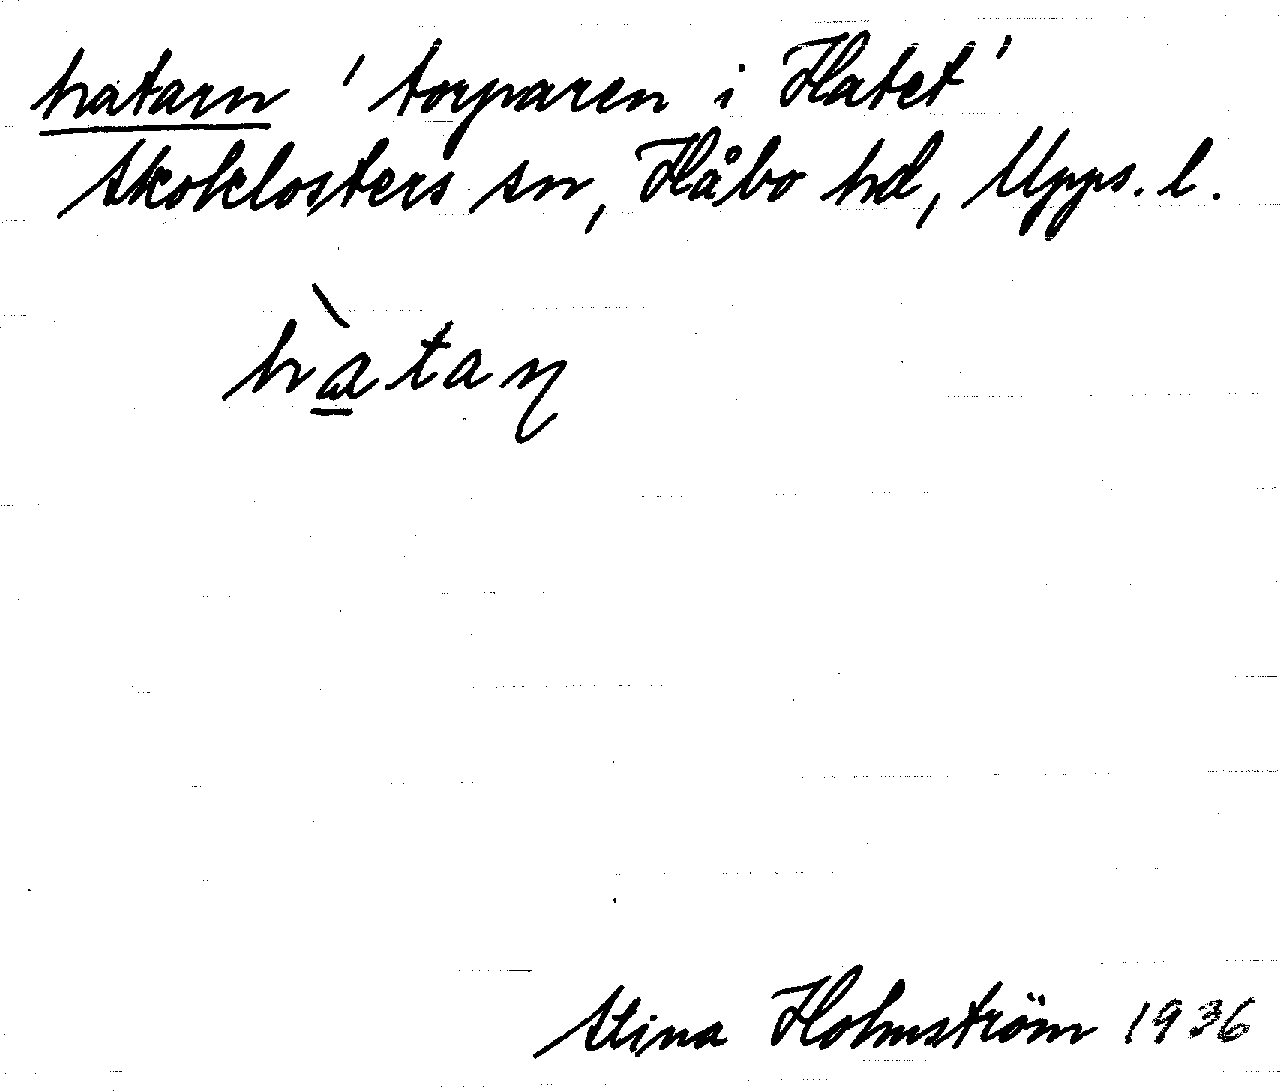 hatarn 'torparen i Hatet'
Skoklosters sn, Håbo hd, Upps. l.
hàtaɳ
Stina Holmström 1936